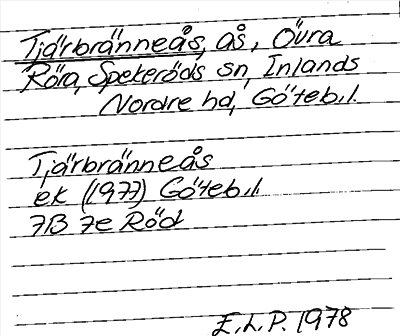 Tjärbränneås, ås, Övra
Röra, Spekeröds sn, Inlands
Nordre hd, Göteb.l.
Tjärbränneås
ek (1977) Göteb.l.
7B 7e Röd
E.L.P. 1978